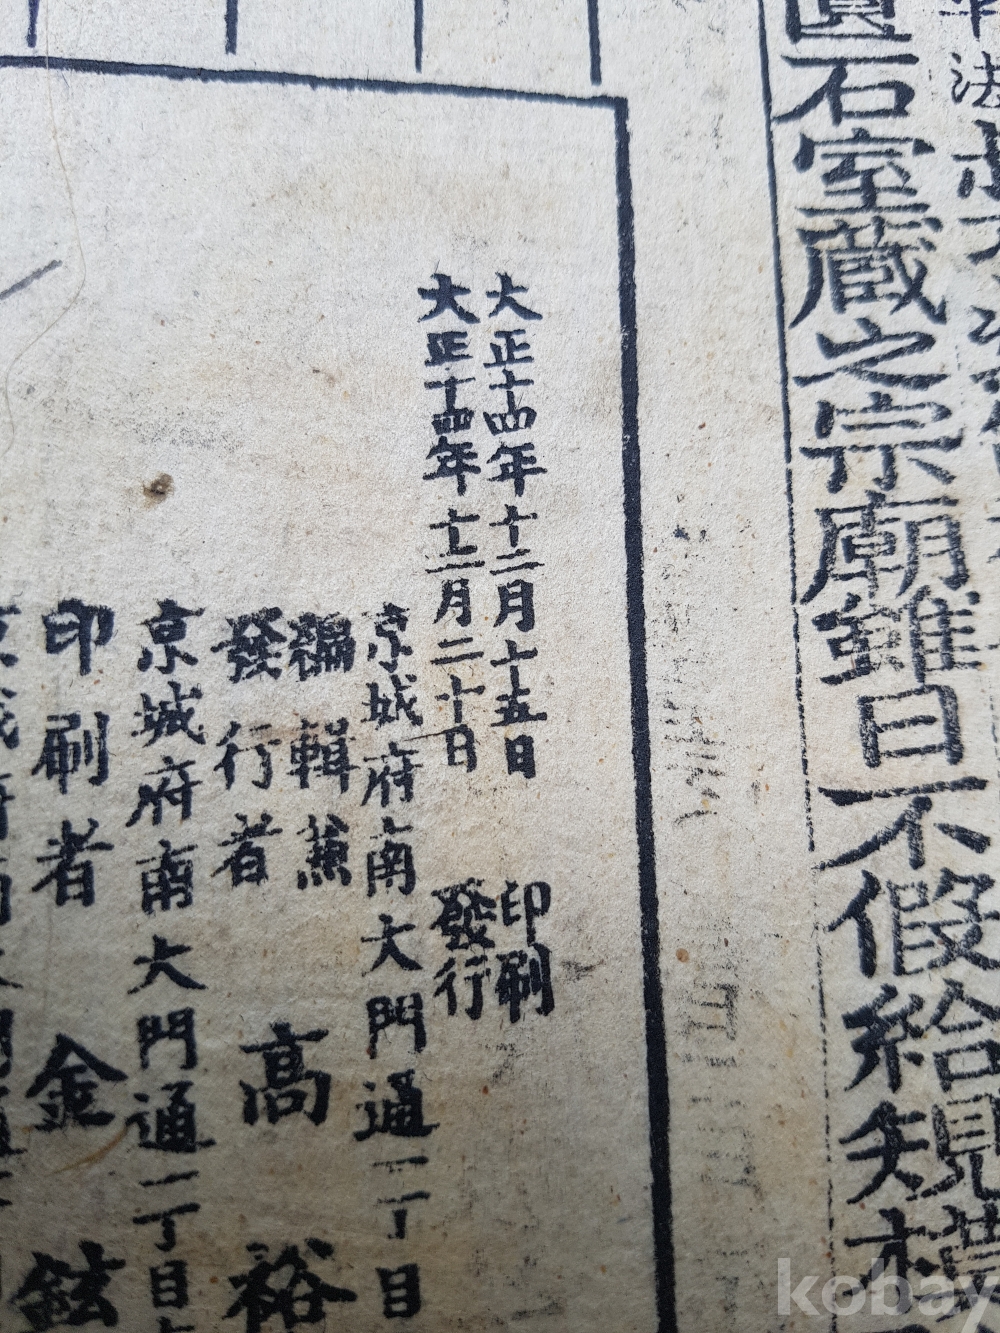 石室蔵之宗廟雖日不假給規
矢
大正十四年十二月十五日 印刷
大正十四年十二月二十日 發行
京城府南大門通一丁目
編輯兼
發行者 高裕
京城府南大門通一丁目
印刷者 金鉉
kobay